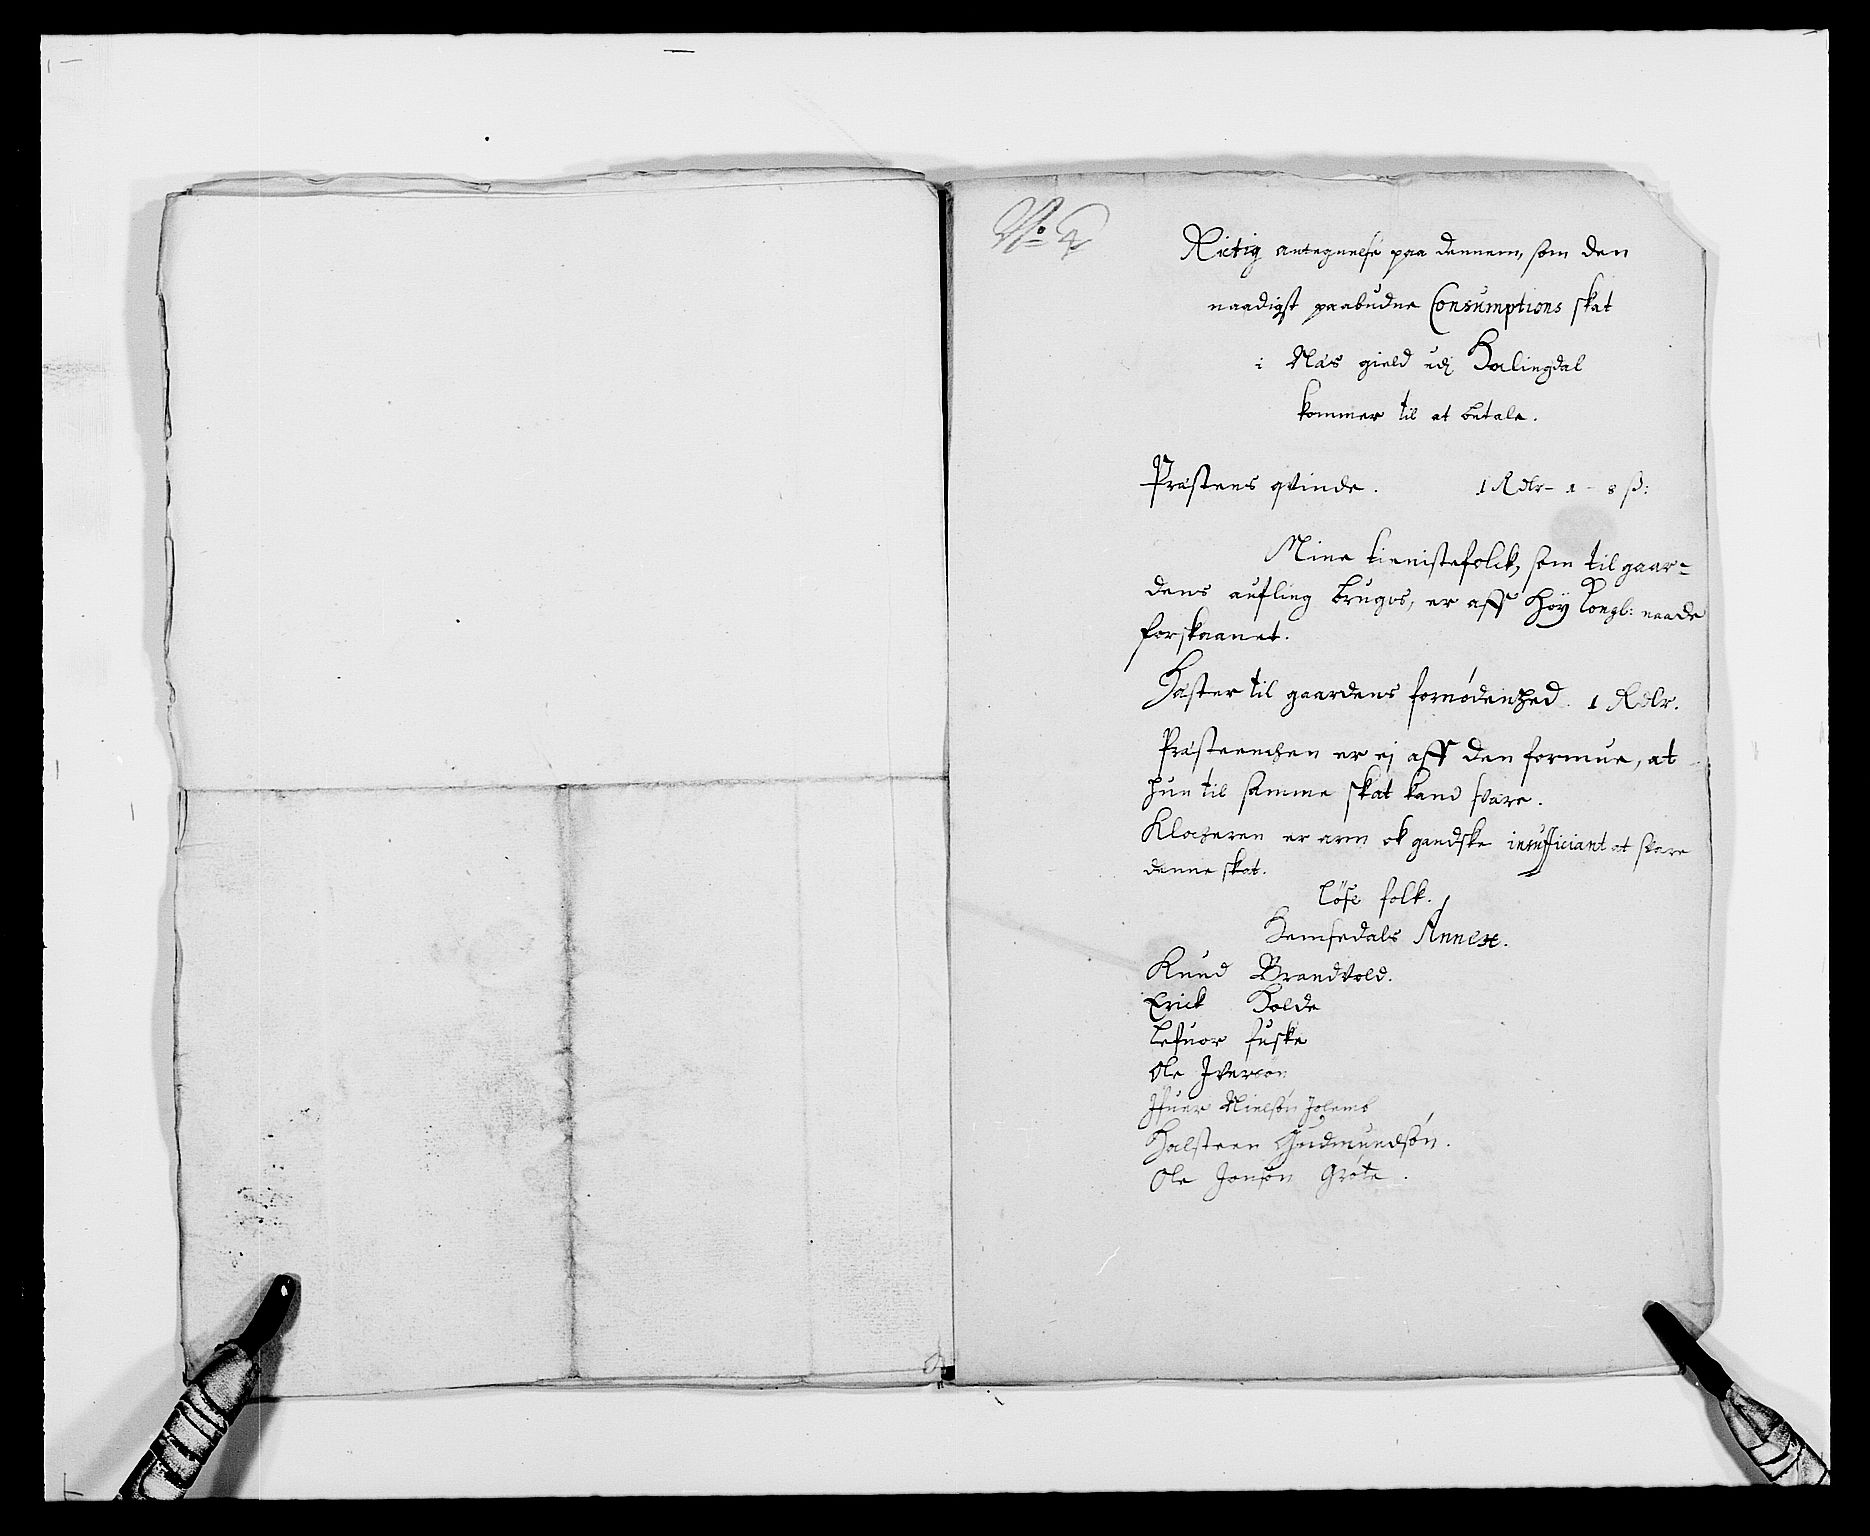 No 4
Rictig antegnelse paa dennem, som den
naadigst paabudne Consumptions skat
i Næs gield udj Halingdal
kommer til at betale.
Præstens qvinde. 1 Rdlr - 1 - 8 ß:
Mine tienistefolck, som til gaar-
dens aufling bruges, er aff Høy Kongl: naade
forskaanet.
Hæster til gaardens fornødenhed. 1 Rdlr.
Præsteenchen er ej aff den formue, at
hun til samme skat kand svare.
Klocheren er arm ok gandske insufficiant at svare
denne skat.
Löse folk.
Hemsedals Annex.
Knud Brandvold.
Erick Holde
Lefuor fuske
Ole Iversøn
Ifuer Nielsøn
Halsteen Gudmundsøn.
Ole Jonsøn Grøte.